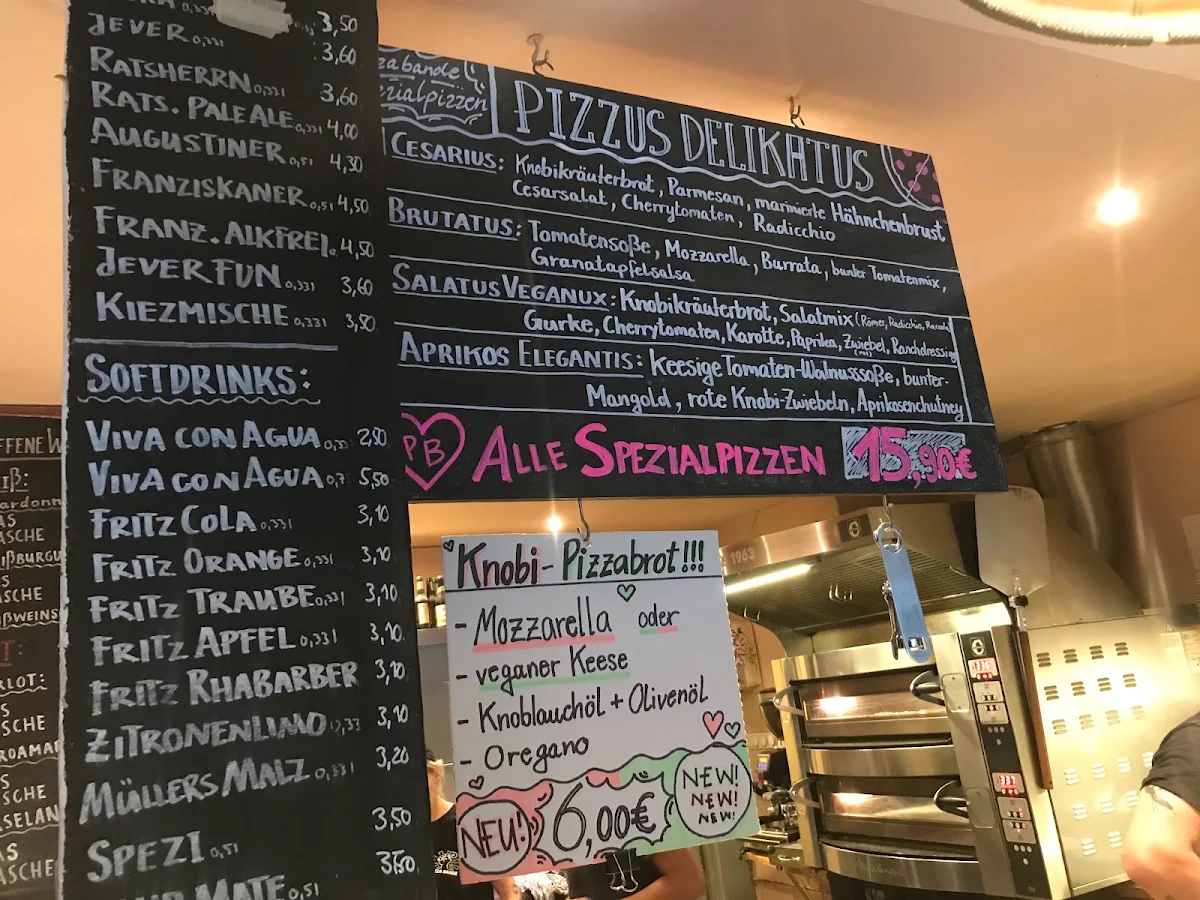 3,50
JEVER 0,33l 3,60
RATSHERRN 0,33l 3,60
RATS. PALE ALE 0,33l 4,00
AUGUSTINER 0,5l 4,30
FRANZISKANER 0,5l 4,50
FRANZ. ALKFREI. 4,50
JEVER FUN 0,33l 3,60
KIEZMISCHE 0,33l 3,50
SOFTDRINKS:
VIVA CON AGUA 0,33 2,50
VIVA CON AGUA 0,7 5,50
FRITZ COLA 0,33l 3,10
FRITZ ORANGE 0,33l 3,10
FRITZ TRAUBE 0,33l 3,10
FRITZ APFEL 0,33l 3,10
FRITZ RHABARBER 3,10
ZITRONENLIMO 0,33 3,10
MÜLLERS MALZ 0,33l 3,20
SPEZI 0,5l 3,50
MATE 0,5l 3,50
zabande
ezialpizzen
PIZZUS DELIKATUS
CESARIUS: Knobikräuterbrot, Parmesan, marinierte Hähnchenbrust
Cesarsalat, Cherrytomaten, Radicchio
BRUTATUS: Tomatensoße, Mozzarella, Burrata, bunter Tomatenmix,
Granatapfelsalsa
SALATUS VEGANUX: Knobikräuterbrot, Salatmix (Römer, Radicchio,
Gurke, Cherrytomaten, Karotte, Paprika, Zwiebel, Ranchdressing
(rot)
APRIKOS ELEGANTIS: Keesige Tomaten-Walnusssoße, bunter-
Mangold, rote Knobi-Zwiebeln, Aprikosenchutney
PB ALLE SPEZIALPIZZEN 15,90€
Knobi-Pizzabrot!!!
- Mozzarella oder
- veganer Keese
- Knoblauchöl + Olivenöl
- Oregano
NEU! 6,00€ NEW!
NEW!
NEW!
1963
336
337
FFENE W
Iß:
ardonn
AS
ASCHE
IßBURGU
SCHE
OßWEINS
T:
RLOT:
SCHE
ROAMAR
SCHE
SELAN
AS
ASCHE